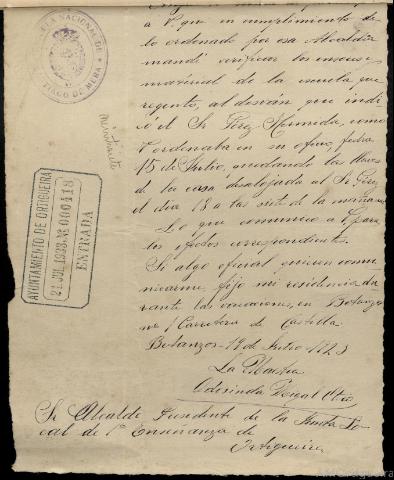 a V. que en cumplimiento de
lo ordenado por esa Alcaldía
mandé verificar los enseres y
material de la escuela que
regento, al desván que indi-
có el Sr Pérez Hermida, como
V. ordenaba en su oficio, fecha
15 de Julio, quedando las llaves
de la casa desalojada al Sr Pérez
el día 18 a las siete de la mañana
Lo que comunico a V. para
los efectos correspondientes.
Si algo oficial quieren comu-
nicarme, fijo mi residencia du-
rante las vacaciones, en Betanzos
Carretera de Castilla
Betanzos 19 de Julio 192
La Maestra
Sr Alcalde Presidente de la Junta Lo-
cal de 1ª Enseñanza de
Ortigueira
ESCUELA NACIONAL DE
DE MERA
AYUNTAMIENTO DE ORTIGUEIRA
21 JUL. Nº 000418
ENTRADA